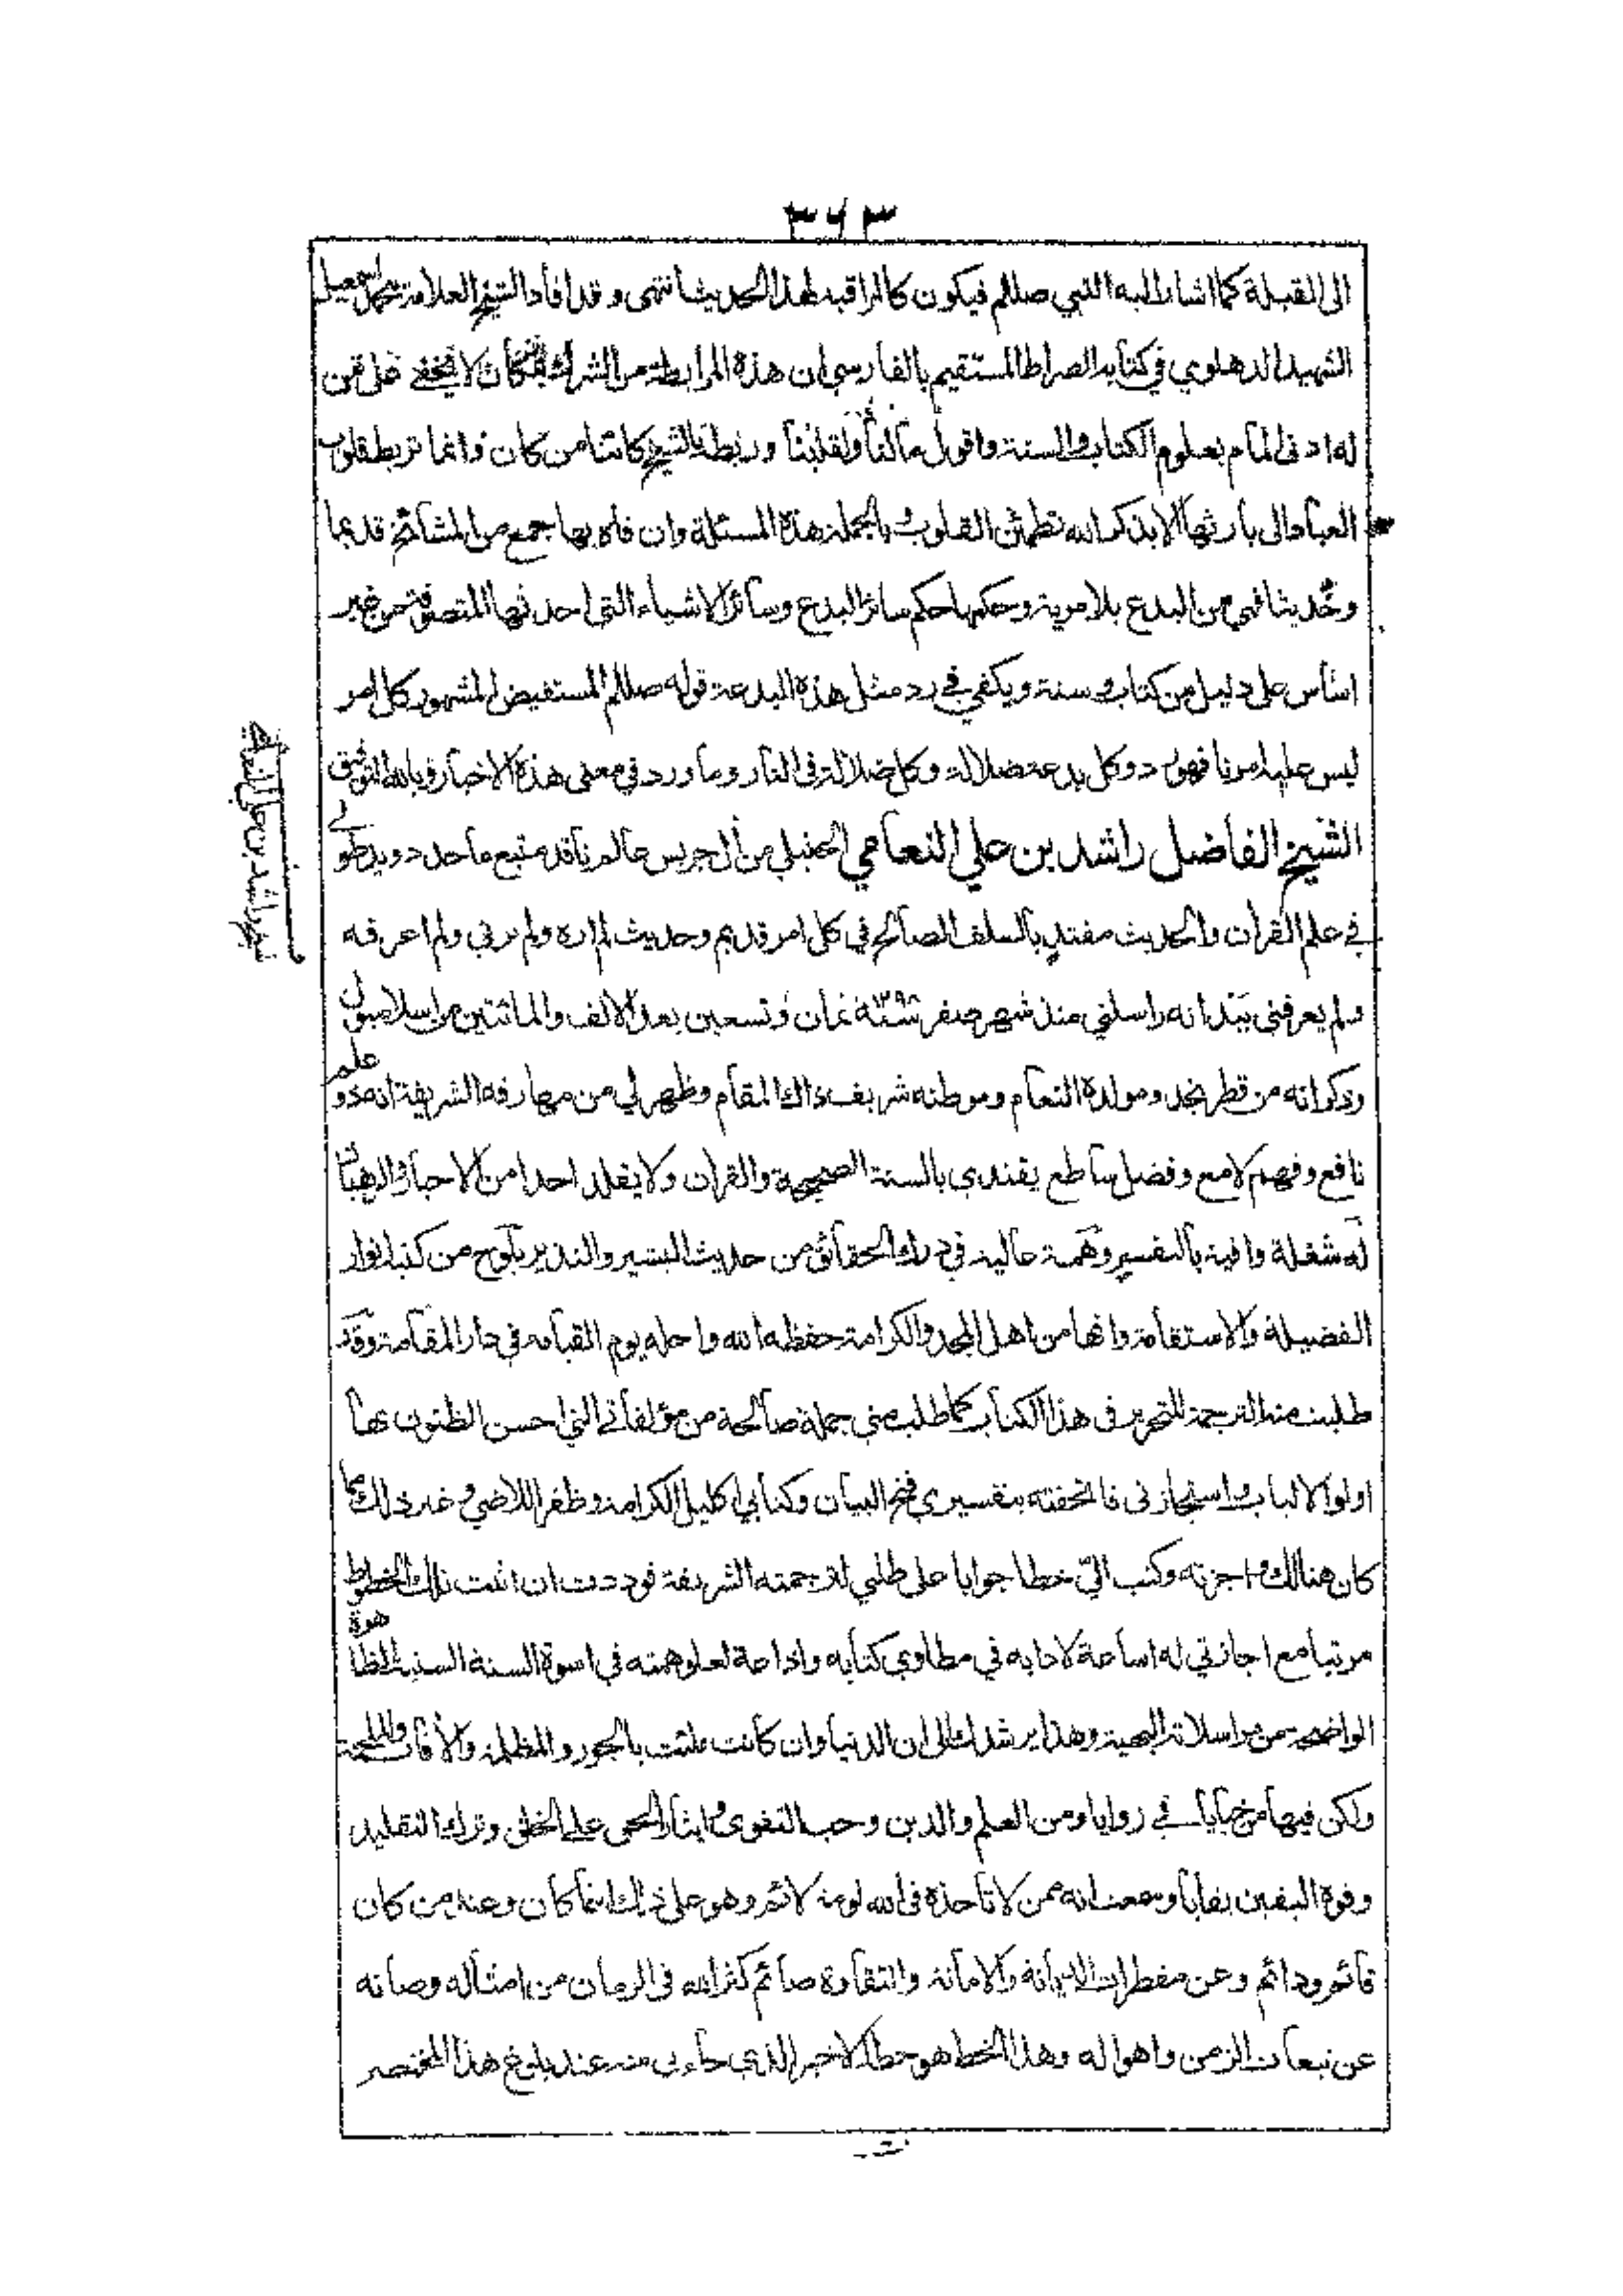 ٣٦٣
الى القبلة كما اشار اليه النبي صللم فيكون كالمراقبة لهذا الحديث انتهى وقد افاد الشيخ العلامة محمد اسمعيل
الشهيد الدهلوي في كتابه الصراط المستقيم بالفارسي ان هذه الرابطة من الشرك بمكان لا يخفى على من
له ادنى المام بعلوم الكتاب والسنة واقول مالنا ولقلبنا وربطة بالشيخ كائنا من كان وانما تربط قلوب
العباد الى بارئها الا بذكر الله تطمئن القلوب وبالجملة هذه المسئلة وان فاه بها جمع من المشائخ قديما
وحديثا فهي من البدع بلا مرية وحكمها حكم سائر البدع وسائر الاشياء التي احدثها المتصوفة من غير
اساس على دليل من كتاب وسنة ويكفي في رد مثل هذه البدعة قوله صللم المستفيض المشهور كل امر
ليس عليه امرنا فهو رد وكل بدعة ضلالة وكل ضلالة في النار وما ورد في معنى هذه الاخبار وبالله التوفيق
الشيخ الفاضل راشد بن علي النعامي الحنبلي من أل جريس عالم ناقد متبع ماحد ذو يد طولى
في علم القرأن والحديث مقتدٍ بالسلف الصالح في كل امر قديم وحديث لم اره ولم يرني ولم اعرفه
ولم يعرفني بَيْد انه راسلني منذ شهر صفر سنة ١٢٩٨ ثمان وتسعين بعد الالف والمائتين من اسلامبول
وذكر انه من قطر نجد ومولده النعام وموطنه شريف ذاك المقام وظهر لي من معارفه الشريفة انه ذو علم
نافع وفهم لامع وفضل ساطع يقتدي بالسنة الصحيحة والقرأن ولا يقلد احدا من الاحبار والرهبان
له شغلة وافية بالتفسير وهمة عالية في درك الحقائق من حديث البشير والنذير يلوح من كتبه انوار
الفضيلة والاستقامة وانها من اهل المجد والكرامة حفظه الله واحله يوم القيامة في دار المقامة وقد
طلبت منه الترجمة للتحرير في هذا الكتاب كما طلب مني جملة صالحة من مؤلفاتي التي احسن الظنون بها
اولوا الالباب واستجازني فاتحفته بتفسيري فتح البيان وكتابي اكليل الكرامة وظفر اللاضي وغير ذلك مما
كان هنالك واجزته وكتب اليّ خطا جوابا على طلبي لترجمته الشريفة فوددت ان اثبت تلك الخطوط
مرتبا مع اجازتي له اساحة لادابه في مطاوي كتابه واذاحة لعلو همته في اسوة السنة السنية الظاهرة
الواضحة من مراسلاته البهية وهذا يرشدك الى ان الدنيا وان كانت ملئت بالجور والمظلمة والأفات والملحمة
ولكن فيها من خبايا في زوايا ومن العلم والدين وحب التقوى وايثار الحق على الخلق وترك التقليد
وقوة اليقين بقايا وسمعت انه ممن لا تاخذه في الله لومة لائم وهو على ذلك اينما كان وعند من كان
قائم ودائم وعن مفطرات الديانة والامانة والتقاوة صائم كثر الله في الزمان من امثاله وصانه
عن تبعات الزمن واهواله وهذا الخط هو خطه الاخير الذي جاءني منه عند بلوغ هذا المختصر
شيخ راشد بن علي النعامي